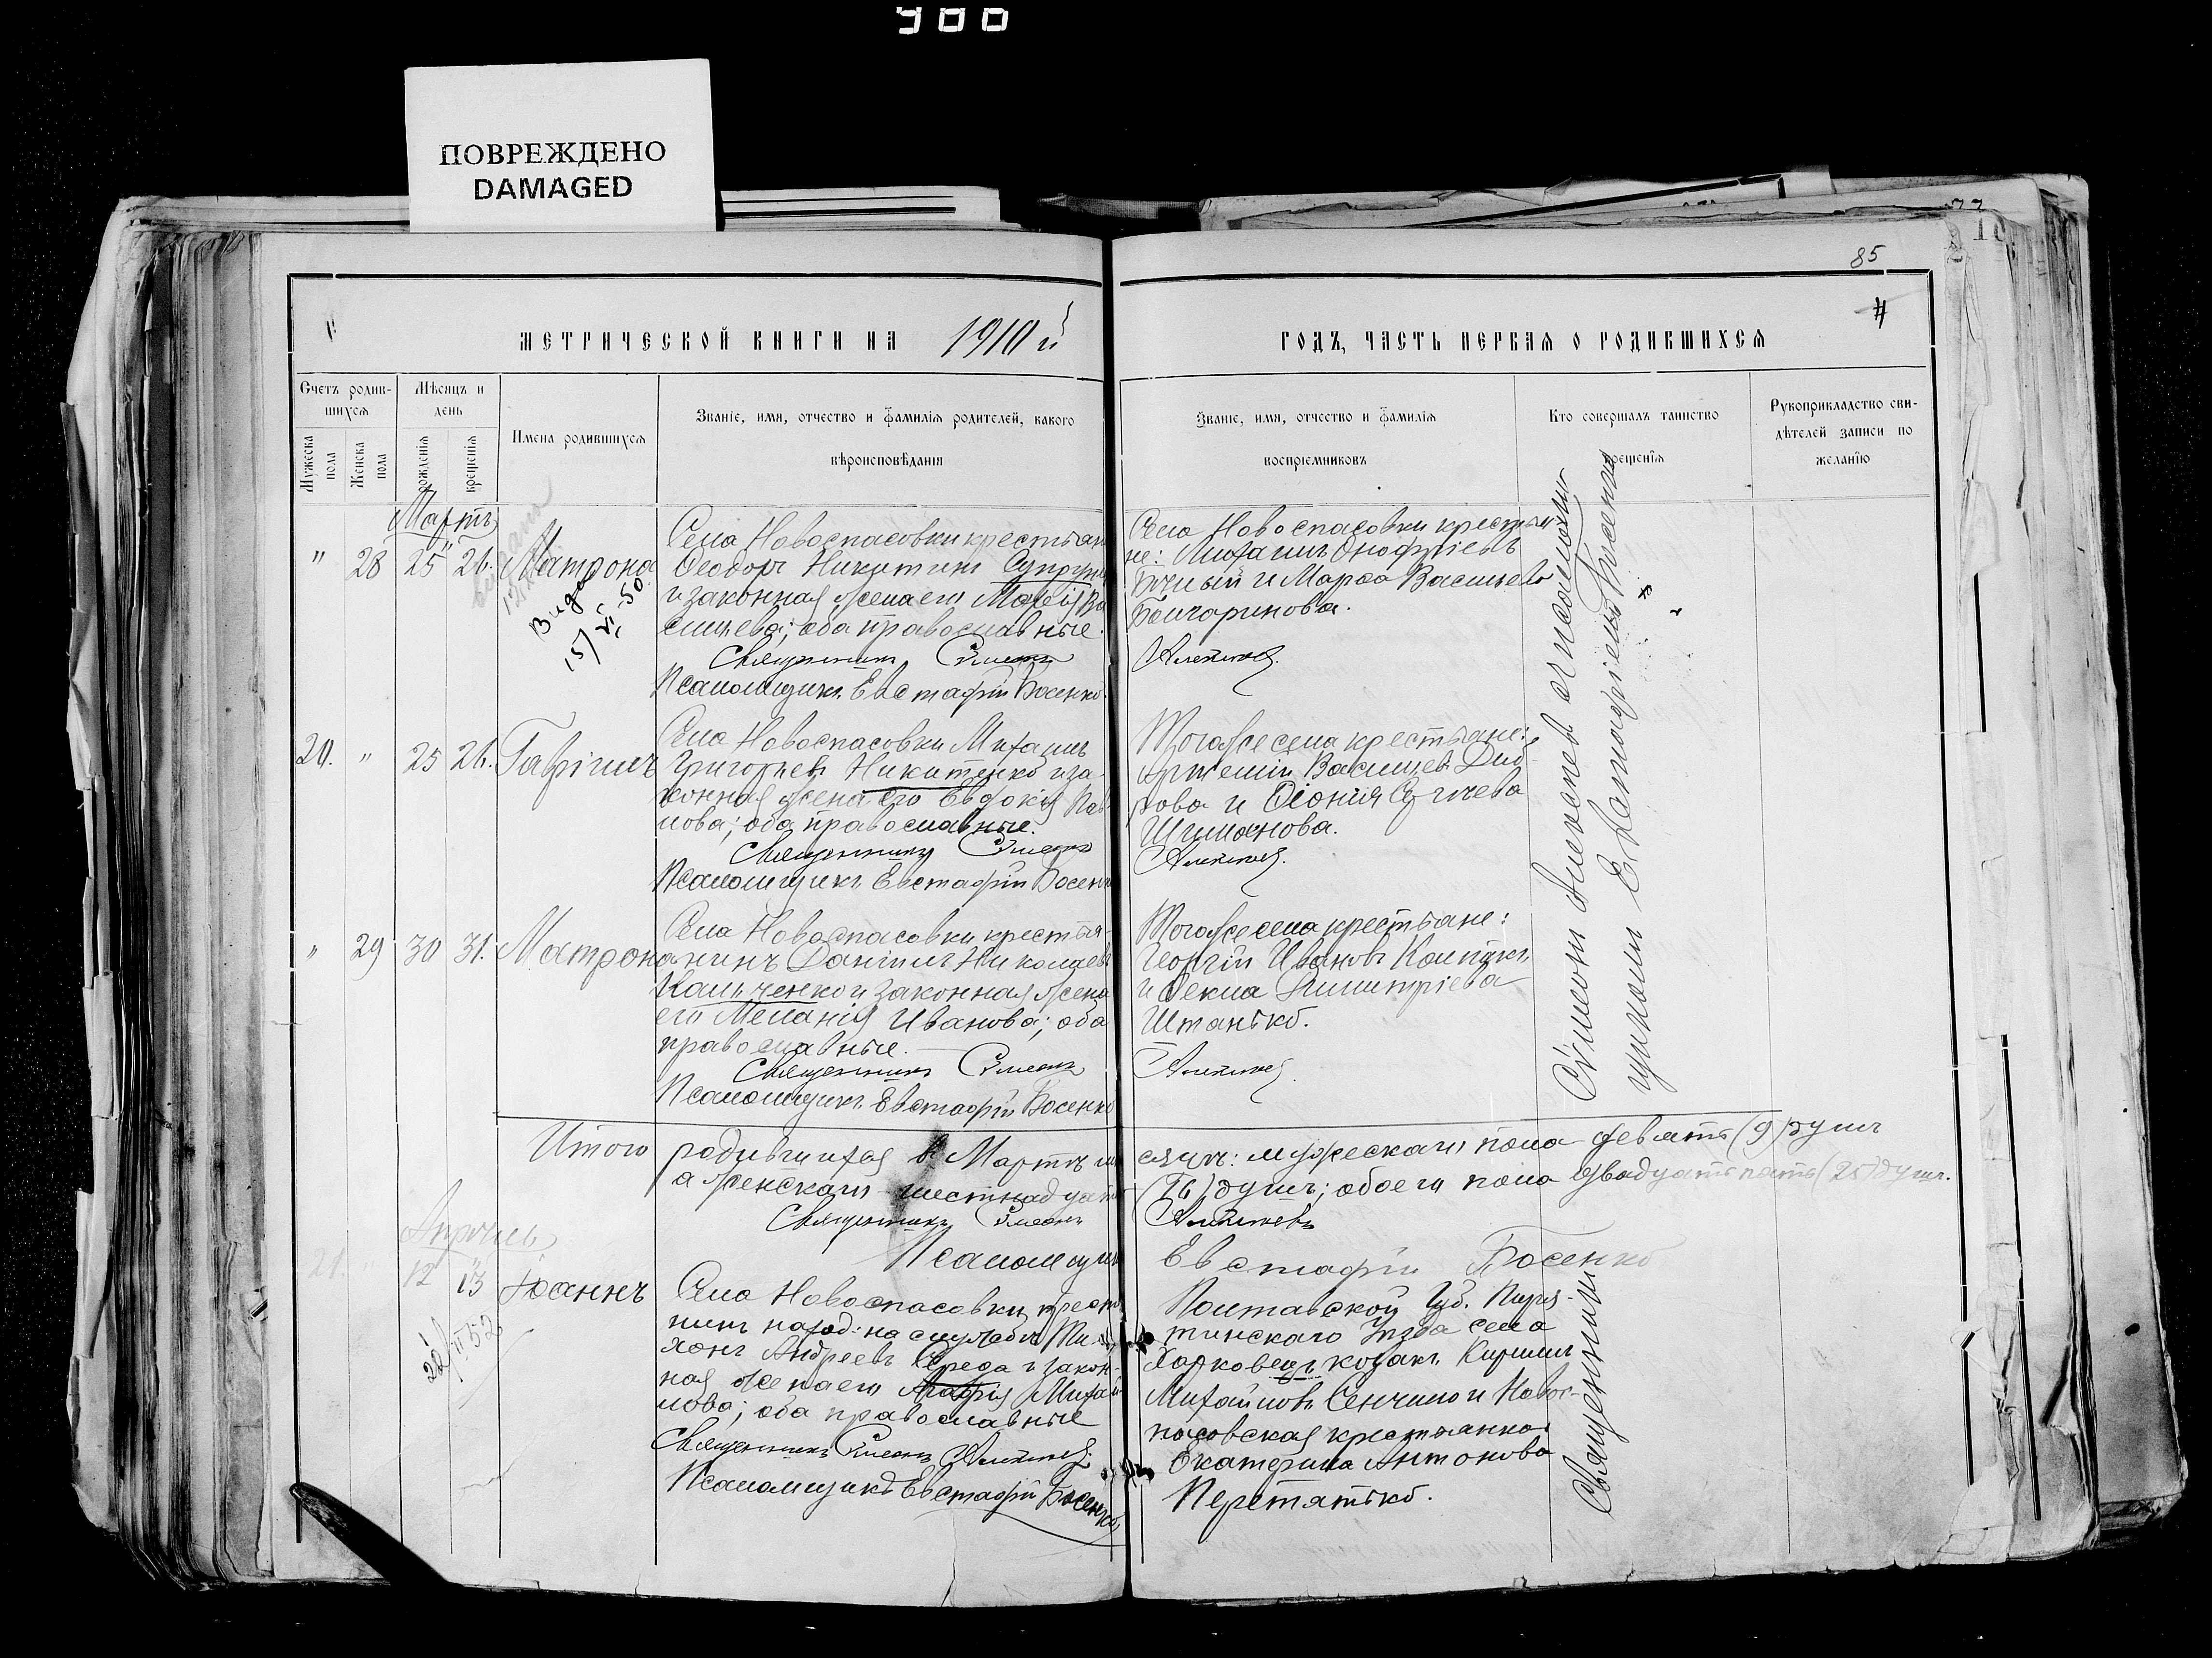 ПОВРЕЖДЕНО
DAMAGED
85
МЕТРИЧЕСКОЙ КНИГИ НА 1910 й
ГОДЪ, ЧАСТЬ ПЕРВАЯ О РОДИВШИХСЯ
Счетъ родив-
шихся
Мужеска пола
Женска пола
Мѣсяцъ и
день
рожденія
крещенія
Имена родившихся
Званіе, имя, отчество и фамилія родителей, какого
вѣроисповѣданія
Званіе, имя, отчество и фамилія
воспріемниковъ
Кто совершалъ таинство
крещенія
Рукоприкладство сви-
дѣтелей записи по
желанію
Мартъ
" 28 25 26. Матрона
15/VI-50
Села Новоспасовки крестьян
Ѳеодоръ Никитинъ Супрунъ
и законная жена его Марія Ва
сильева; оба православные.
Священникъ Симеонъ
Псаломщикъ Евстафій Босенко.
Села Новоспасовки крестья-
не: Михаилъ Онофріевъ
и Марѳа Васильева
Бочаринова.
20. " 25 26. Гавріилъ
Села Новоспасовки Михаилъ
Григорьевъ Никитенко и за-
конная жена его Евдокія Пав-
лова; оба православные.
Священникъ Симеонъ
Псаломщикъ Евстафій Босенк
Тогоже села крестьяне:
Васильевъ Дид-
рова и
Шуманова.
" 29 30 31. Матрона
Села Новоспасовки крестья-
нинъ Даніилъ Николаевъ
Кальченко и законная жена
его Меланія Иванова; оба
православные.
Священникъ Симеонъ
Псаломщикъ Евстафій Босенко
Тогоже села крестьяне:
Георгій Ивановъ
и Ѳекла Димитріева
Штанько.
Итого родившихся въ Мартѣ мѣ
сяцѣ: мужескаго пола девять (9) душъ
а женскаго шестнадцать
(16) душъ; обоего пола двадцать пять (25) душъ.
Священникъ Симеонъ
Псаломщикъ Евстафій Босенко
Апрѣль
21. " 12 13 Іоаннъ
22/II 52
Села Новоспасовки крестья
нинъ наход: на службѣ Ти-
хонъ Андреевъ Середа и закон-
ная жена его Агафія Михай-
лова; оба православные
Священникъ Симеонъ
Псаломщикъ Евстафій Босенко
Полтавской Губ. Пиря-
тинскаго Уѣзда села
Харковецъ козакъ Кириллъ
Михайловъ Сенчило и Новос-
пасовская крестьянка
Екатерина Антонова
Перетятько.
Священникъ Симеонъ
Евстафіемъ Босенко